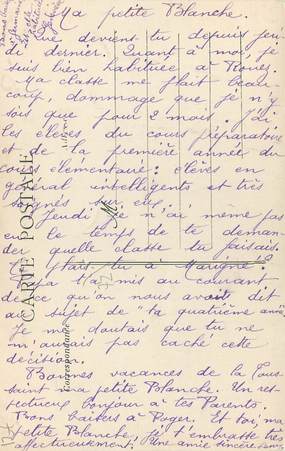 Ma petite Blanche.
Que deviens-tu depuis jeu-
di dernier. Quant à moi, je
suis bien habituée à Rouez.
Ma classe me plaît beau-
coup, dommage que je n'y
sois que pour 2 mois. J'ai
les élèves du cours préparatoire
et de la première année du
cours élémentaire: élèves en
général intelligents et très
soignés sur eux.
Jeudi je n'ai même pas
eu le temps de te deman-
der quelle classe tu faisais.
plais-tu à Marigné?
mis au courant
de ce qu'on nous avait dit
au sujet de "la quatrième année
Je me doutais que tu ne
m'aurais pas caché cette
décision.
Bonnes vacances de la Tous-
saint ma petite Blanche. Un res-
pectueux bonjour à tes Parents.
Bons baisers à Roger. Et toi, ma
petite Blanche, je t'embrasse très
affectueusement. Une amie sincère
CARTE POSTALE
Correspondance